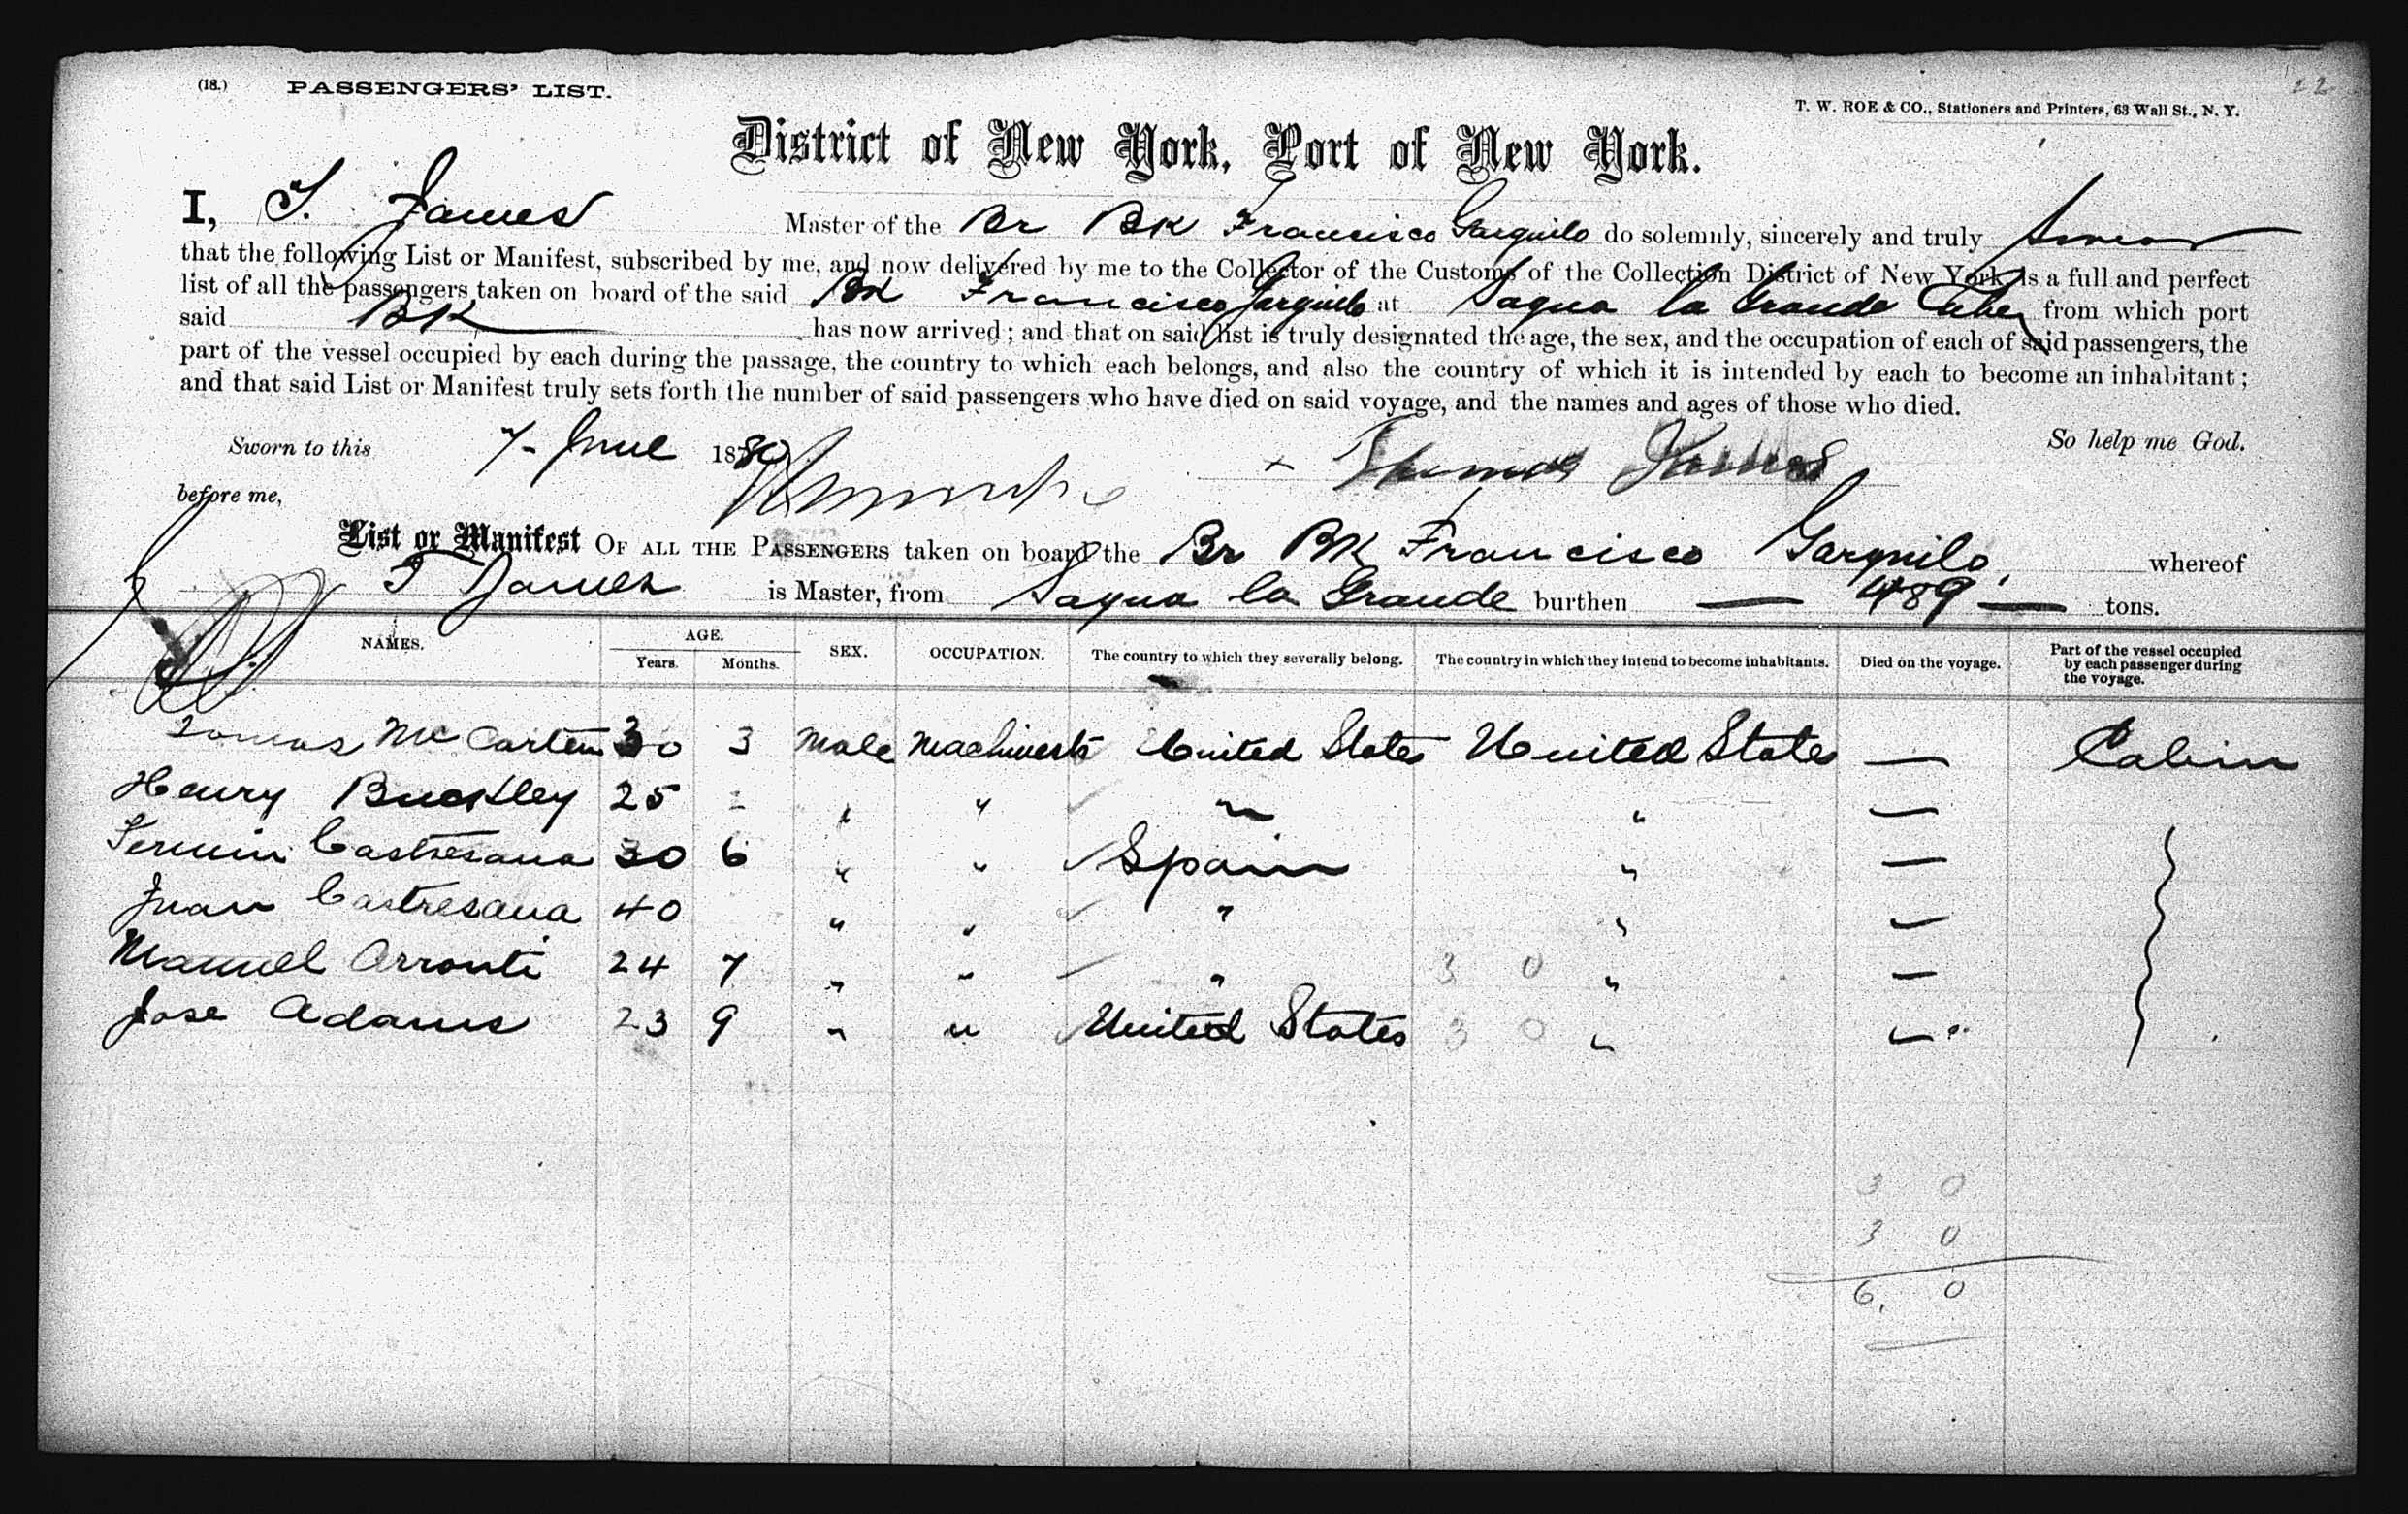 22
(18.) PASSENGERS' LIST.
T. W. ROE & CO., Stationers and Printers, 63 Wall St., N. Y.
District of New York, Port of New York.
I, T. James Master of the Br Bk Francisco Garguilo do solemnly, sincerely and truly Swear
that the following List or Manifest, subscribed by me, and now delivered by me to the Collector of the Customs of the Collection District of New York, is a full and perfect
list of all the passengers taken on board of the said Bk Francisco Garguilo at Sagua la Grande Cuba from which port
said Bk has now arrived; and that on said list is truly designated the age, the sex, and the occupation of each of said passengers, the
part of the vessel occupied by each during the passage, the country to which each belongs, and also the country of which it is intended by each to become an inhabitant;
and that said List or Manifest truly sets forth the number of said passengers who have died on said voyage, and the names and ages of those who died.
So help me God.
Sworn to this 7 - June 1880 Thomas James
before me,
List or Manifest OF ALL THE PASSENGERS taken on board the Br Bk Francisco Garguilo, whereof
T James is Master, from Sagua la Grande burthen — 489 — tons.
NAMES. AGE. Years. Months. SEX. OCCUPATION. The country to which they severally belong. The country in which they intend to become inhabitants. Died on the voyage. Part of the vessel occupied by each passenger during the voyage.
Tomas McCarten 30 3 Male Machinest United States United States — Cabin
Henry Buckley 25 - " " " " —
Fermin Castresana 30 6 " " Spain " —
Juan Castresana 40 " " " " —
Manuel Arronti 24 7 " " " 3 0 " —
Jose Adams 23 9 " " United States 3 0 " —
3 0
3 0
6. 0